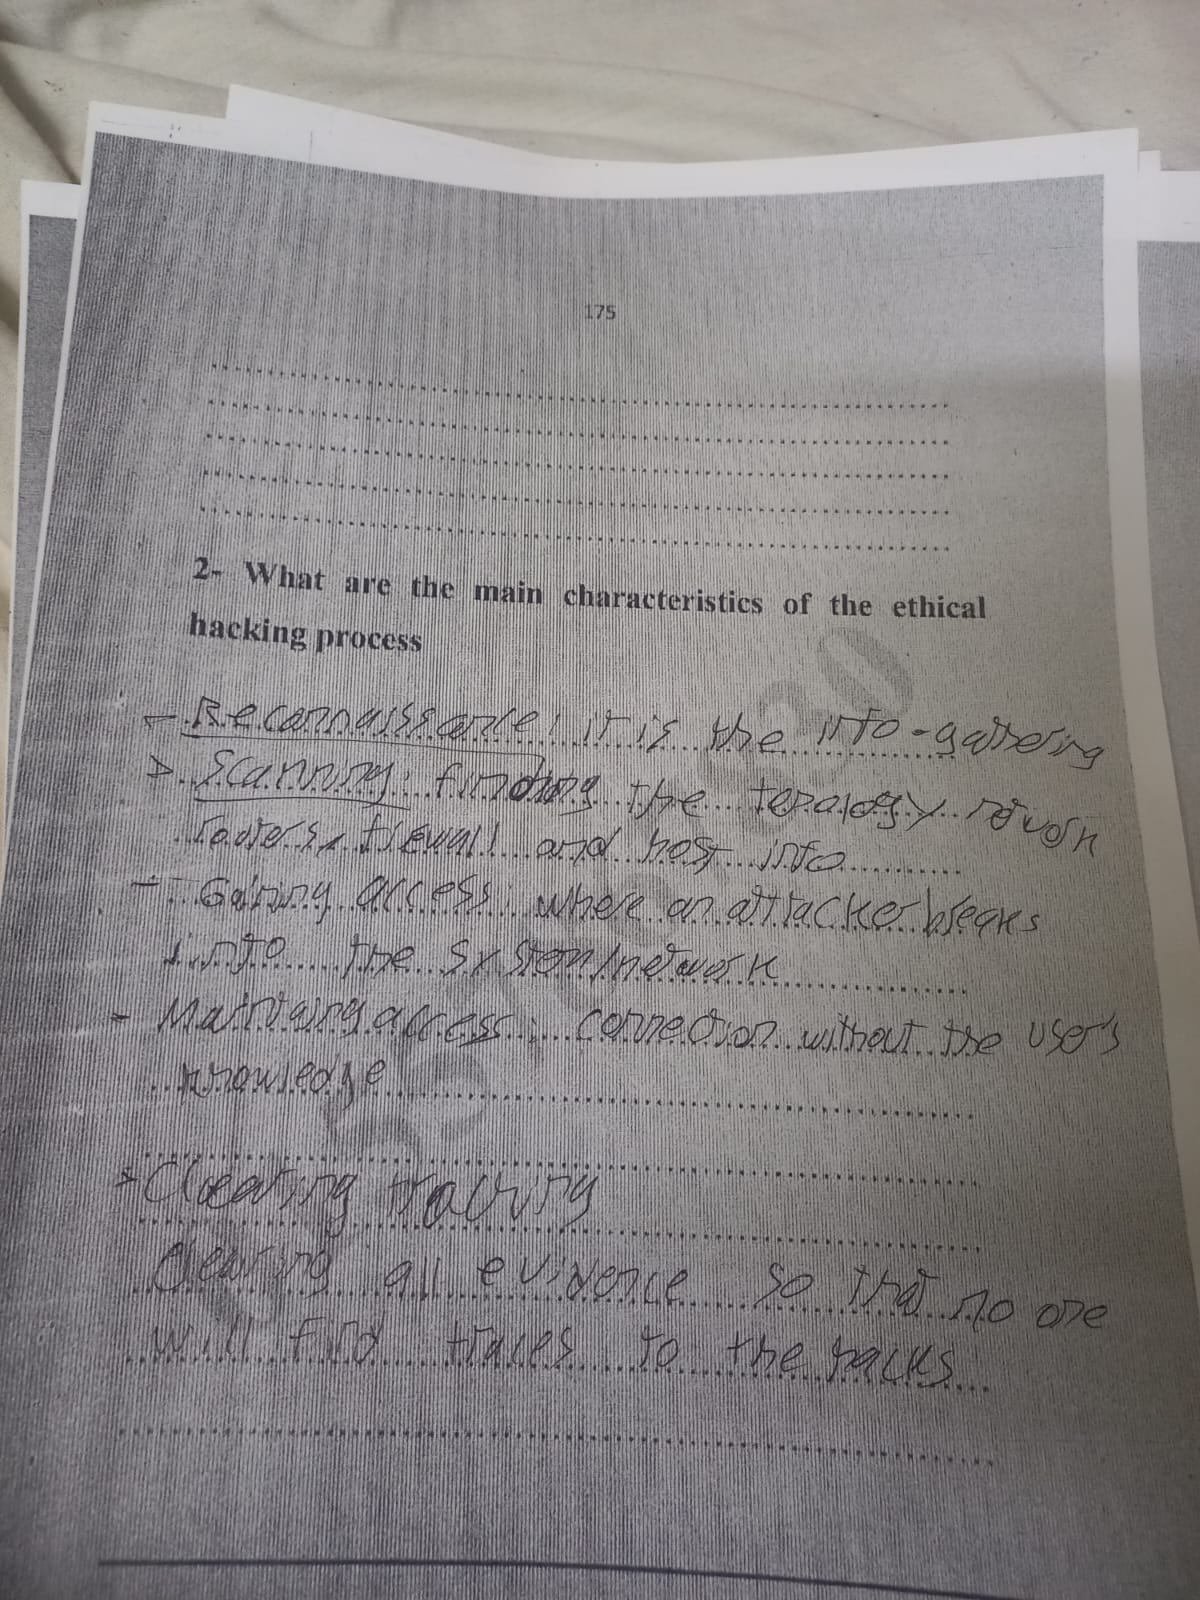 175
2- What are the main characteristics of the ethical
hacking process
- Reconnaissance: it is the info-gathering
- Scanning: finding the topology network
routers, firewall and host info
- Gaining access: where an attacker breaks
into the system/network
- Maintaining access: connection without the user's
knowledge
- Clearing tracking
clearing all evidence so that no one
will find traces to the hacks